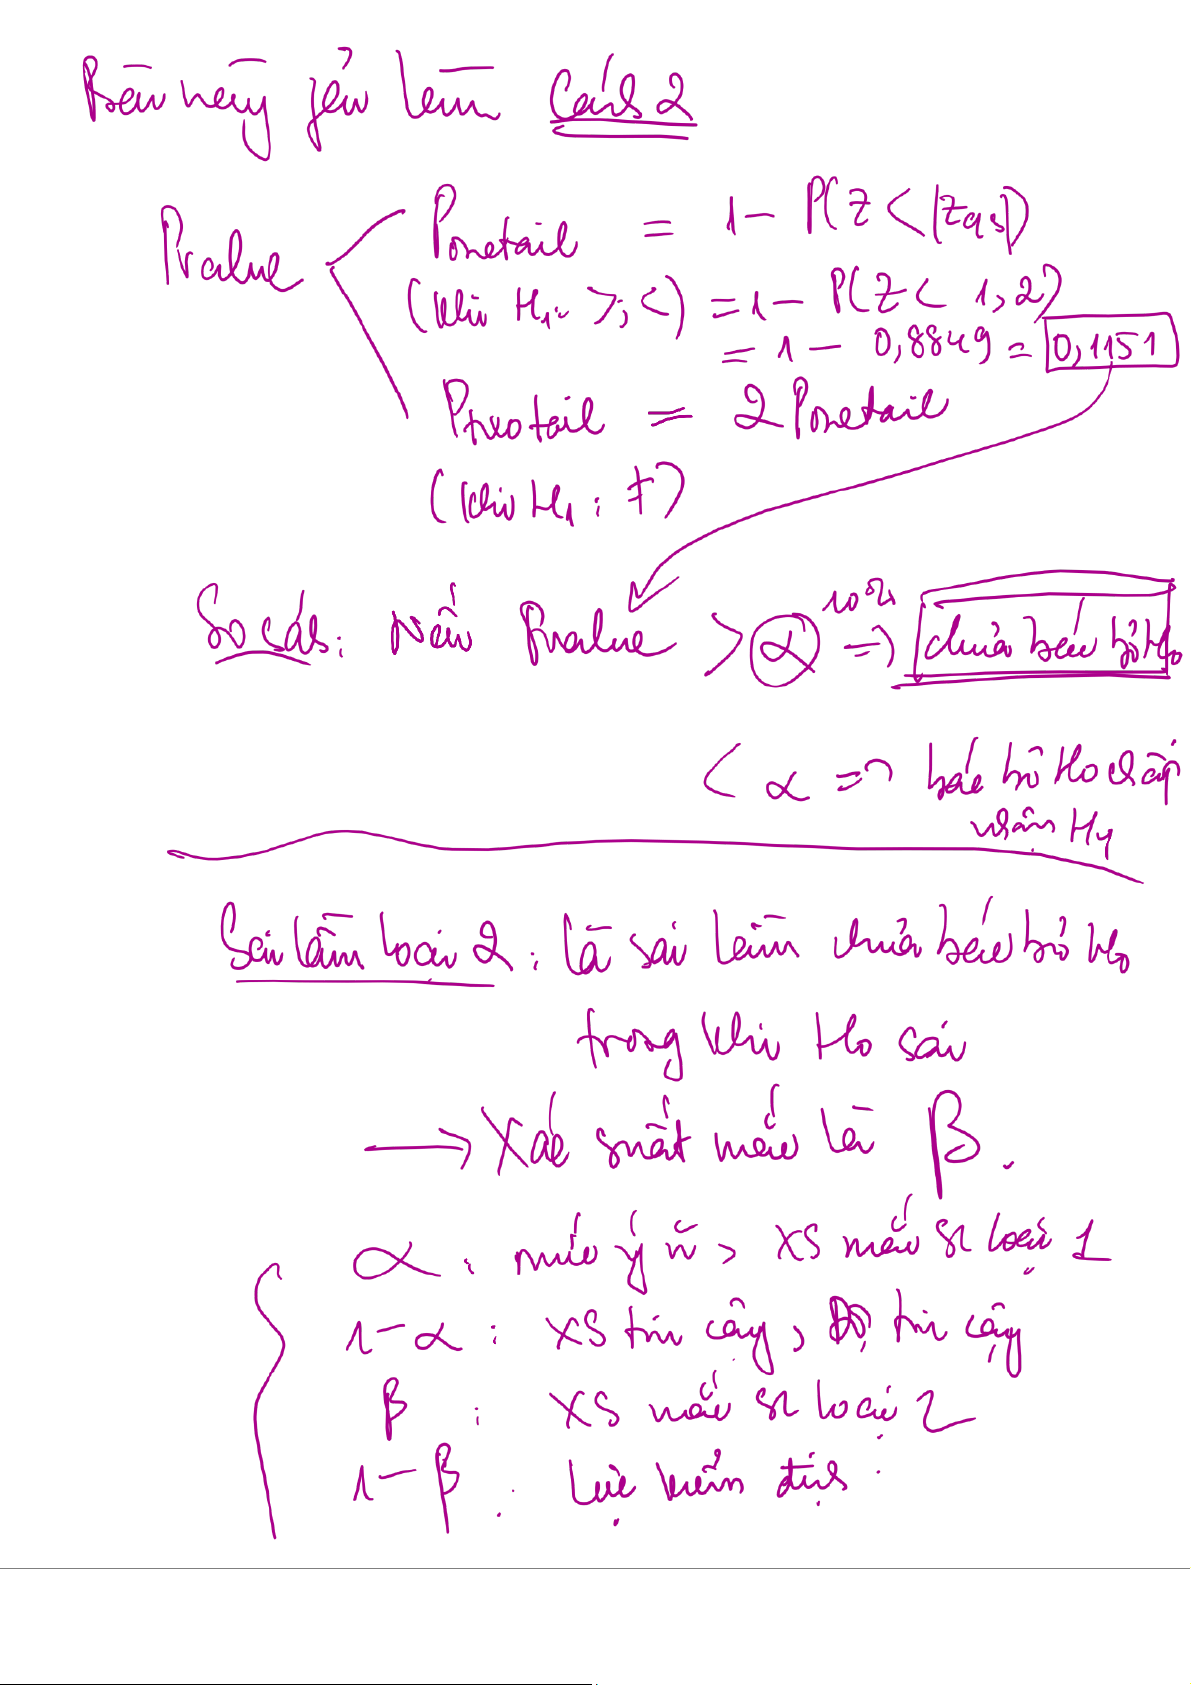 Bài này yêu làm Cách 2
Pvalue
Ponetail = 1 - P(Z < |Zqs|)
(khi H1: >; <) = 1 - P(Z < 1,2)
= 1 - 0,8849 = 0,1151
Ptwotail = 2 Ponetail
(khi H1: ≠)
So sánh: Nếu Pvalue > α 10% => chưa bác bỏ H0
< α => bác bỏ H0 chấp
nhận H1
Sai lầm loại 2: là sai lầm chưa bác bỏ H0
trong khi H0 sai
→ Xác suất mắc là β.
α: mức ý n, XS mắc SL loại 1
1-α: XS tin cậy, Độ tin cậy
β: XS mắc SL loại 2
1-β: Lực kiểm định.